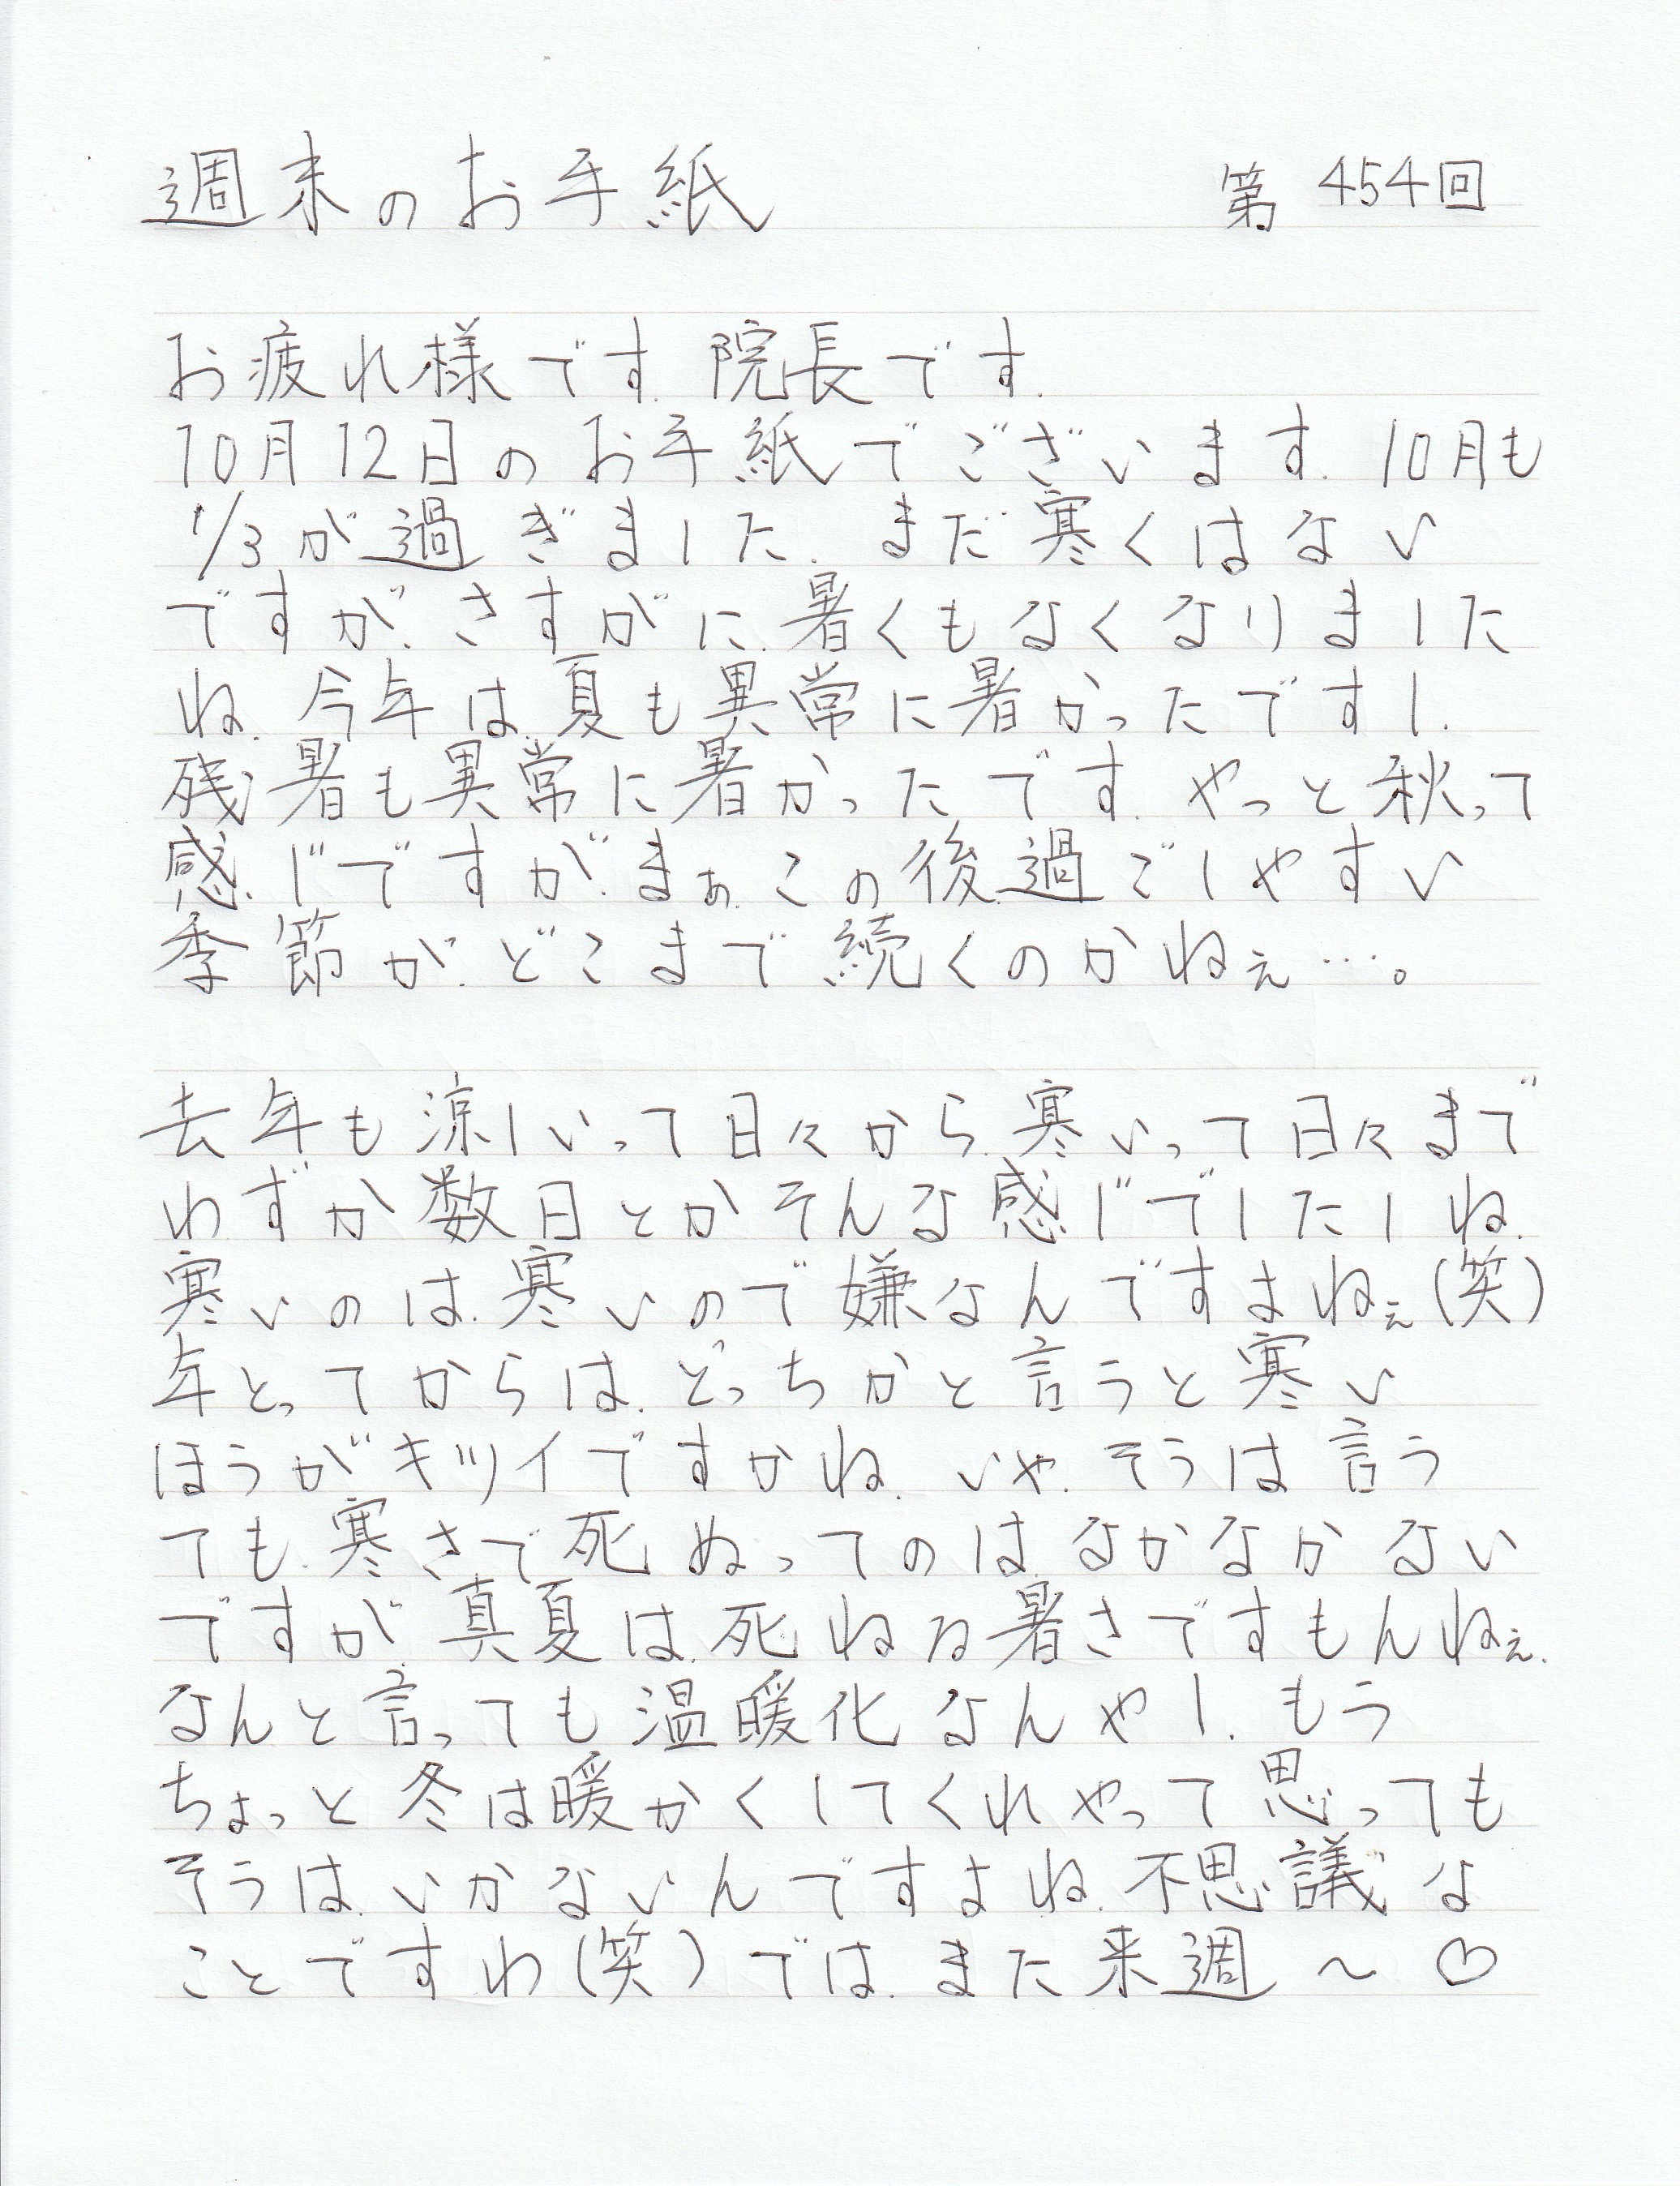 週末のお手紙 第454回
お疲れ様です.院長です.
10月12日のお手紙でございます.10月も
1/3が過ぎました.まだ寒くはない
ですが.さすがに.暑くもなくなりました
ね.今年は.夏も異常に暑かったですし.
残暑も異常に暑かったです.やっと秋って
感じですが.まぁ.この後.過ごしやすい
季節が.どこまで続くのかねぇ…。
去年も涼しいって日々から.寒いって日々まで
わずか数日とかそんな感じでしたしね.
寒いのは.寒いので嫌なんですよねぇ(笑)
年とってからは.どっちかと言うと寒い
ほうがキツイですかね.いや.そうは言う
ても.寒さで死ぬってのは.なかなかない
ですが.真夏は.死ねる暑さですもんねぇ.
なんと言っても温暖化なんやし.もう
ちょっと冬は暖かくしてくれやって思っても
そうは.いかないんですよね.不思議な
ことですわ(笑)では.また来週～♡